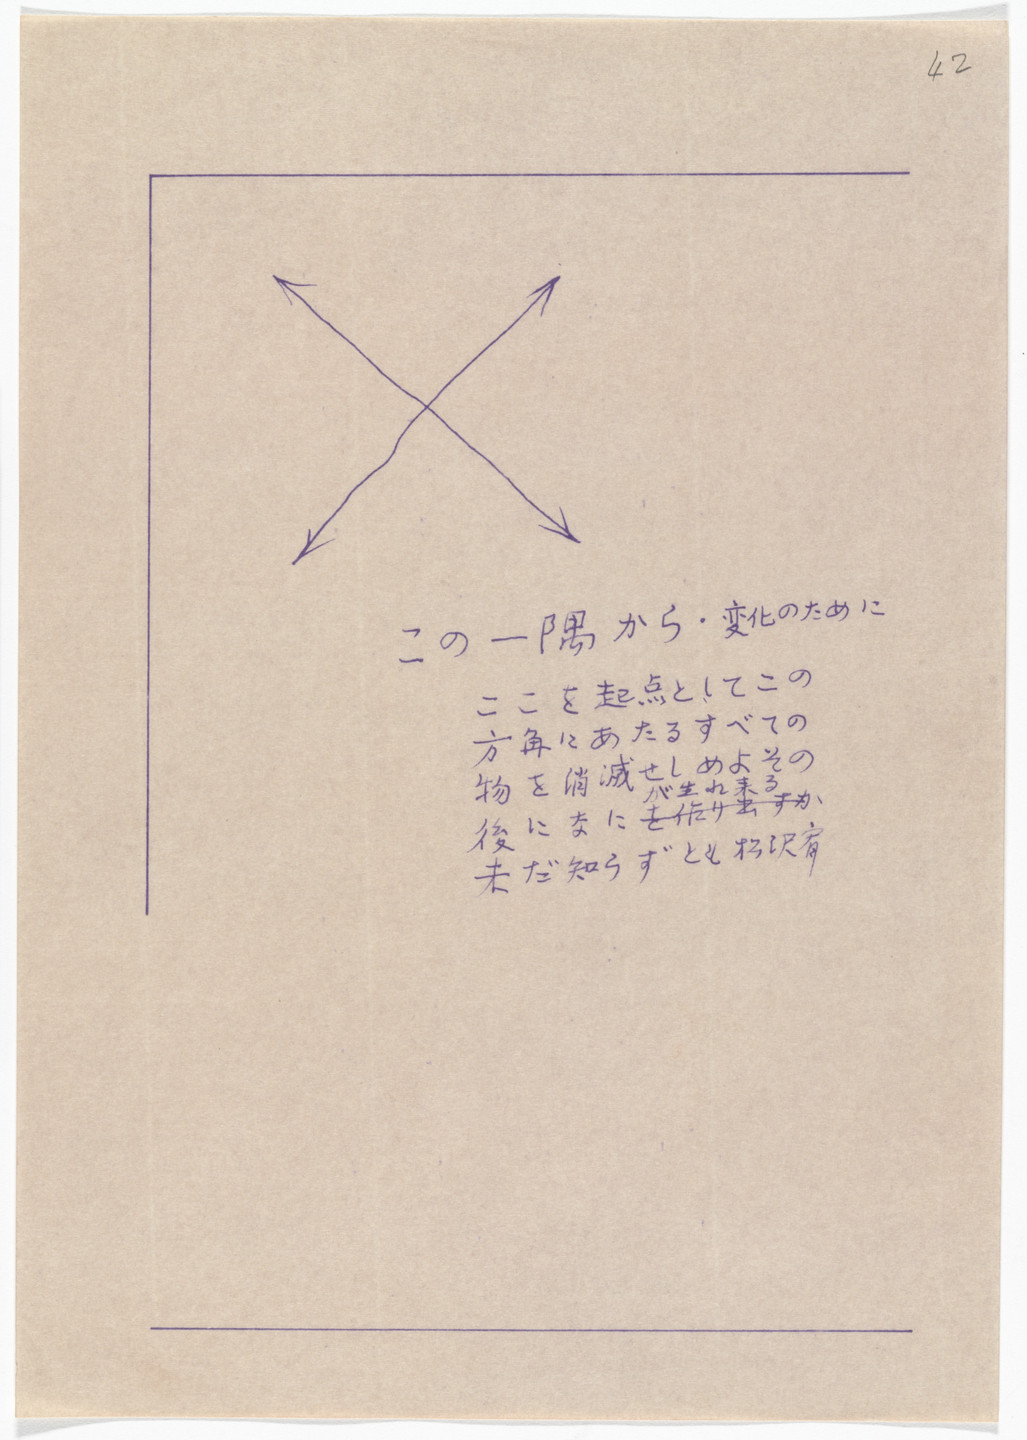 42
この一隅から・変化のために
ここを起点としてこの
方角にあたるすべての
物を消滅せしめよその
が生れ来る
後になにを作り出すか
未だ知らずとも 松沢宥